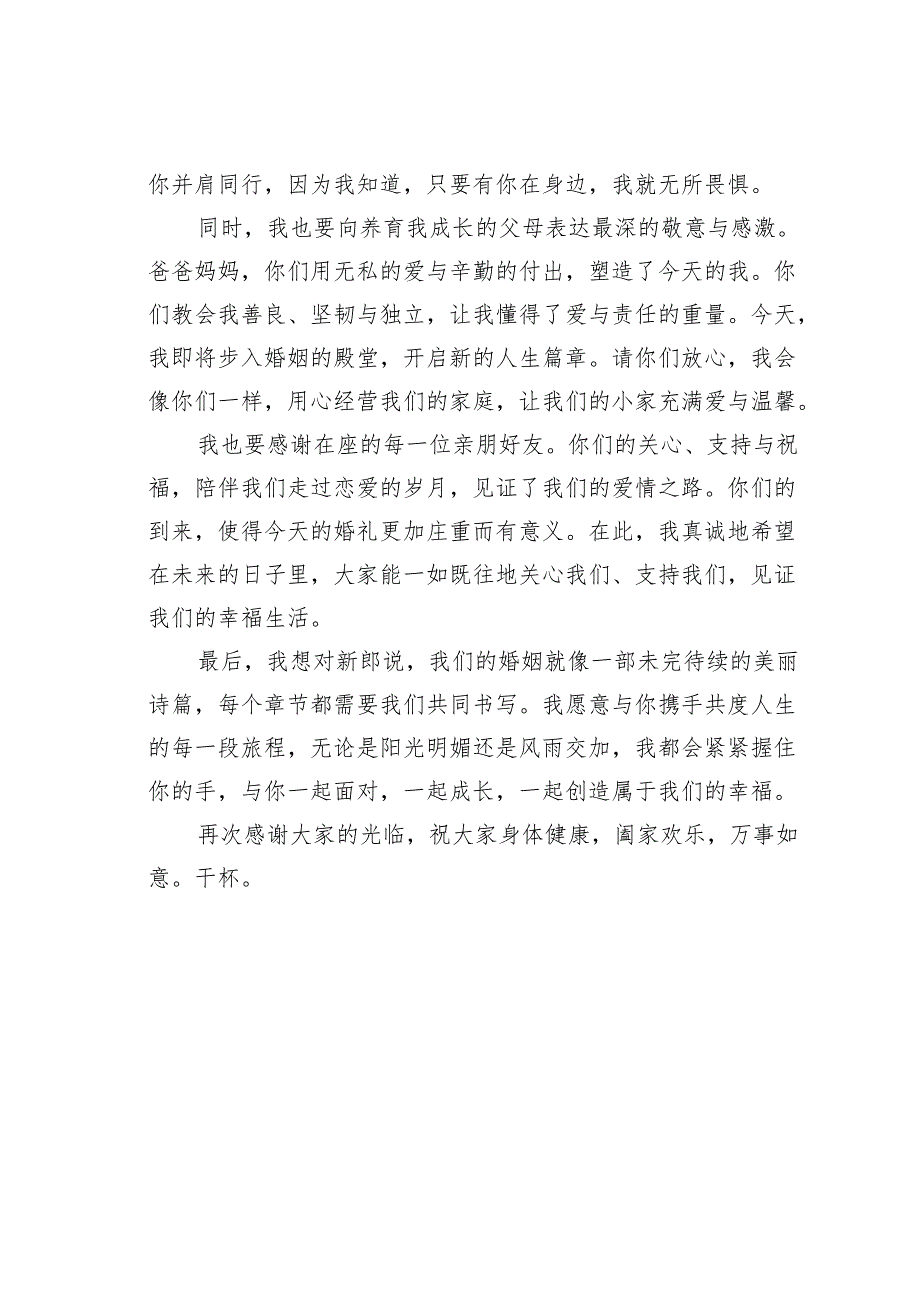 你并肩同行，因为我知道，只要有你在身边，我就无所畏惧。
同时，我也要向养育我成长的父母表达最深的敬意与感激。
爸爸妈妈，你们用无私的爱与辛勤的付出，塑造了今天的我。你
们教会我善良、坚韧与独立，让我懂得了爱与责任的重量。今天，
我即将步入婚姻的殿堂，开启新的人生篇章。请你们放心，我会
像你们一样，用心经营我们的家庭，让我们的小家充满爱与温馨。
我也要感谢在座的每一位亲朋好友。你们的关心、支持与祝
福，陪伴我们走过恋爱的岁月，见证了我们的爱情之路。你们的
到来，使得今天的婚礼更加庄重而有意义。在此，我真诚地希望
在未来的日子里，大家能一如既往地关心我们、支持我们，见证
我们的幸福生活。
最后，我想对新郎说，我们的婚姻就像一部未完待续的美丽
诗篇，每个章节都需要我们共同书写。我愿意与你携手共度人生
的每一段旅程，无论是阳光明媚还是风雨交加，我都会紧紧握住
你的手，与你一起面对，一起成长，一起创造属于我们的幸福。
再次感谢大家的光临，祝大家身体健康，阖家欢乐，万事如
意。干杯。